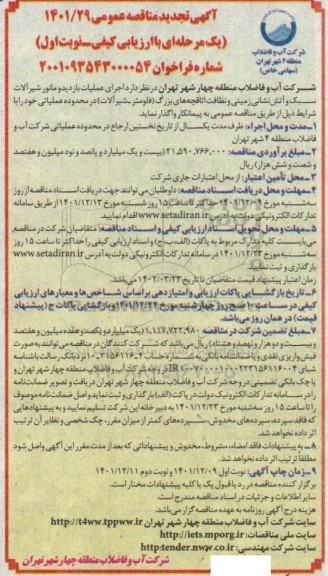 آگهی تجدید مناقصه عمومی ۱۴۰۱/۲۹
(یک مرحله‌ای با ارزیابی کیفی - نوبت اول)
شماره فراخوان ۲۰۰۱۰۹۳۵۴۳۰۰۰۰۵۴
شرکت آب و فاضلاب
منطقه ۴ شهر تهران
(سهامی خاص)
شرکت آب و فاضلاب منطقه چهار شهر تهران در نظر دارد اجرای عملیات بازدید و مانور شیرآلات
سبک و آتش‌نشانی زمینی و نظافت اتاقچه‌های بزرگ (فلومتر - شیرآلات) در محدوده عملیاتی خود را با
شرایط ذیل از طریق مناقصه عمومی به پیمانکار واگذار نماید.
۱- مدت و محل اجرا: ظرف مدت یکسال از تاریخ نخستین ارجاع در محدوده عملیاتی شرکت آب و
فاضلاب منطقه ۴ شهر تهران
۲- مبلغ برآوردی مناقصه: ۲۱,۵۹۰,۷۶۶,۰۰۰ (بیست و یک میلیارد و پانصد و نود میلیون و هفتصد
و شصت و شش هزار) ریال
۳- محل تأمین اعتبار: از محل اعتبارات جاری شرکت
۴- مهلت و محل دریافت اسناد مناقصه: داوطلبان می‌توانند جهت دریافت اسناد مناقصه از روز
سه‌شنبه مورخ ۱۴۰۱/۱۲/۰۹ حداکثر تا ساعت ۱۵ روز شنبه مورخ ۱۴۰۱/۱۲/۱۳ از طریق سامانه
تدارکات الکترونیکی دولت به آدرس www.setadiran.ir اقدام نمایند.
۵- مهلت و محل تحویل اسناد ارزیابی کیفی و اسناد مناقصه: متقاضیان شرکت در مناقصه
می‌بایست کلیه مدارک مربوط به پاکات (الف-ب-ج) و اسناد ارزیابی کیفی را حداکثر تا ساعت ۱۵ روز
سه‌شنبه مورخ ۱۴۰۱/۱۲/۲۳ در سامانه تدارکات الکترونیکی دولت به آدرس www.setadiran.ir
بارگذاری و ثبت نمایند.
زمان اعتبار پیشنهاد قیمت متقاضیان تا تاریخ ۱۴۰۲/۰۳/۲۳ می‌باشد.
۶- تاریخ بازگشایی پاکات ارزیابی و امتیازدهی براساس شاخص‌ها و معیارهای ارزیابی
کیفی در ساعت ۱۰ صبح روز چهارشنبه مورخ ۱۴۰۱/۱۲/۲۴ و بازگشایی پاکات ج (پیشنهاد
قیمت) در همان روز می‌باشد.
۷- مبلغ تضمین شرکت در مناقصه ۱,۱۱۷,۷۲۲,۹۸۰ (یک میلیارد و یکصد و هفده میلیون و هفتصد
و بیست و دو هزار و نهصد و هشتاد) ریال می‌باشد که شرکت‌کنندگان در مناقصه می‌توانند به صورت
فیش واریزی نقدی و یا ضمانتنامه بانکی به شماره حساب
در وجه شرکت آب و فاضلاب منطقه چهار شهر تهران و
یا چک بانکی تضمینی در وجه شرکت آب و فاضلاب منطقه چهار شهر تهران دریافت و تصویر ضمانت‌نامه
را در سامانه تدارکات الکترونیکی دولت در پاکت (الف) بارگذاری و ثبت نماید و اصل ضمانت‌نامه موصوف
را تا ساعت ۱۵ روز سه‌شنبه مورخ ۱۴۰۱/۱۲/۲۳ به دبیرخانه این شرکت تسلیم نمایید و به پیشنهادهایی
که فاقد سپرده، سپرده‌های مخدوش، سپرده‌های کمتر از میزان مقرر، چک شخصی و نظایر آن ترتیب
اثر داده نخواهد شد.
۸- به پیشنهادات فاقد امضاء، مشروط، مخدوش و پیشنهاداتی که بعد از مدت مقرر این آگهی واصل شود
مطلقا ترتیب اثر داده نخواهد شد.
۹- زمان چاپ آگهی: نوبت اول ۱۴۰۱/۱۲/۰۹ و نوبت دوم ۱۴۰۱/۱۲/۱۱
برگزار کننده مناقصه در رد یا قبول یک یا کلیه پیشنهادات مختار است.
سایر اطلاعات و جزئیات در اسناد مناقصه مندرج است.
هزینه درج آگهی روزنامه به عهده مناقصه گزار می‌باشد.
سایت شرکت آب و فاضلاب منطقه چهار شهر تهران http://t4ww.tppww.ir
سایت ملی مناقصات: http://iets.mporg.ir
سایت شرکت مهندسی: http:tender.nww.co.ir
شرکت آب و فاضلاب منطقه چهار شهر تهران